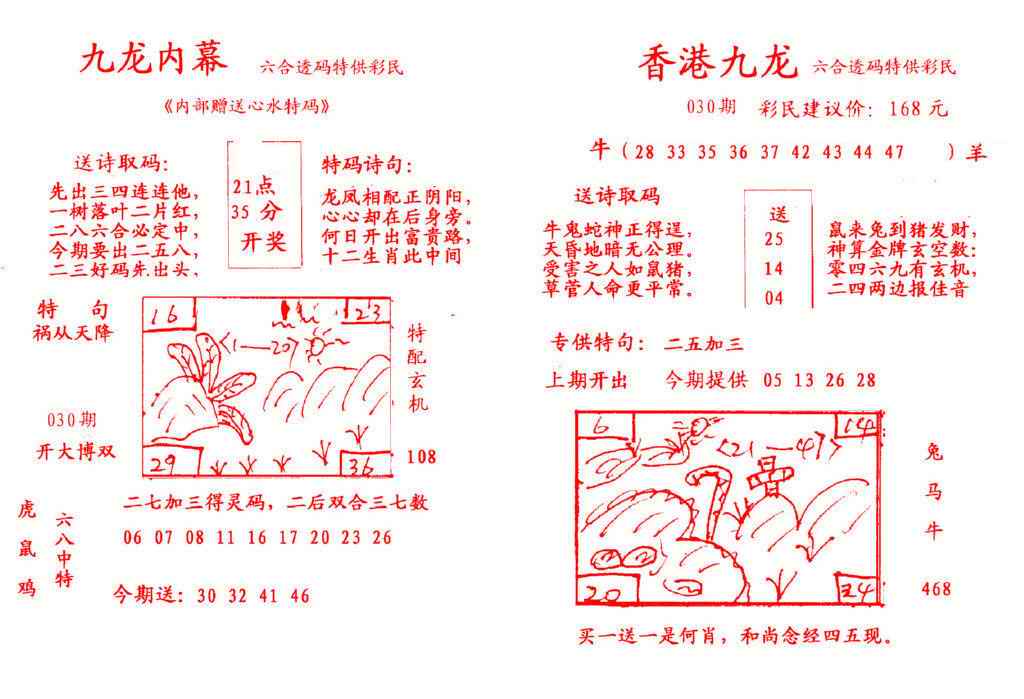 九龙内幕 六合透码特供彩民
《内部赠送心水特码》
送诗取码:
先出三四连连他,
一树落叶二片红,
二八六合必定中,
今期要出二五八,
二三好码先出头,
21点
35分
开奖
特码诗句:
龙凤相配正阴阳,
心心却在后身旁。
何日开出富贵路,
十二生肖此中间
特 句
祸从天降
030期
开大博双
16
23
〈1—20〉
29
36
特配玄机
108
二七加三得灵码, 二后双合三七数
06 07 08 11 16 17 20 23 26
虎鼠鸡
六八中特
今期送: 30 32 41 46
香港九龙 六合透码特供彩民
030期 彩民建议价: 168元
牛 (28 33 35 36 37 42 43 44 47 ) 羊
送诗取码
牛鬼蛇神正得逞,
天昏地暗无公理。
受害之人如鼠猪,
草菅人命更平常。
送
25
14
04
鼠来兔到猪发财,
神算金牌玄空数:
零四六九有玄机,
二四两边报佳音
专供特句: 二五加三
上期开出 今期提供 05 13 26 28
6
14
〈21—47〉
20
24
兔
马
牛
468
买一送一是何肖, 和尚念经四五现。